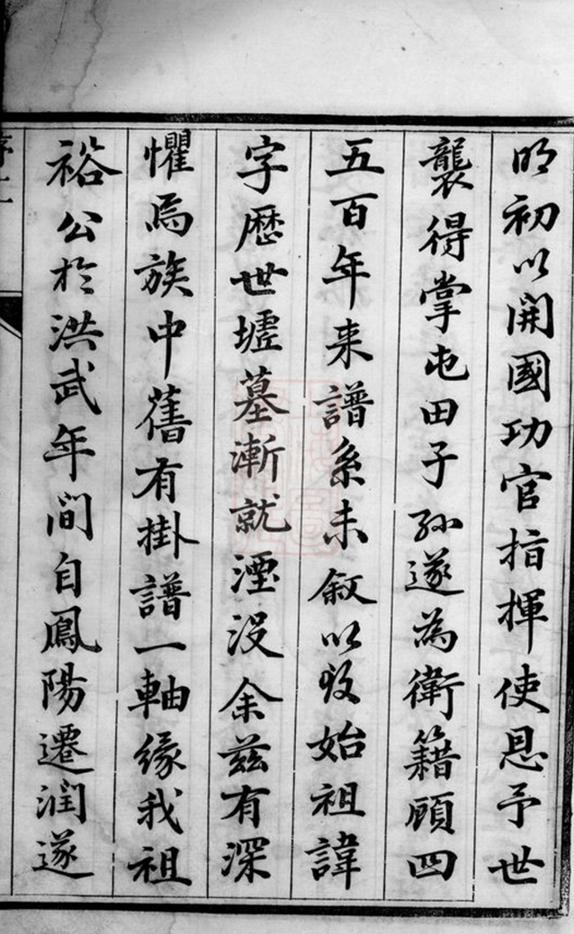 明初以開國功官指揮使恩予世
襲得掌屯田子孫遂為衛籍顧四
五百年来譜系未叙以致始祖諱
字歷世墟墓漸就湮没余茲有深
懼焉族中舊有掛譜一軸緣我祖
裕公於洪武年间自鳳陽遷润遂